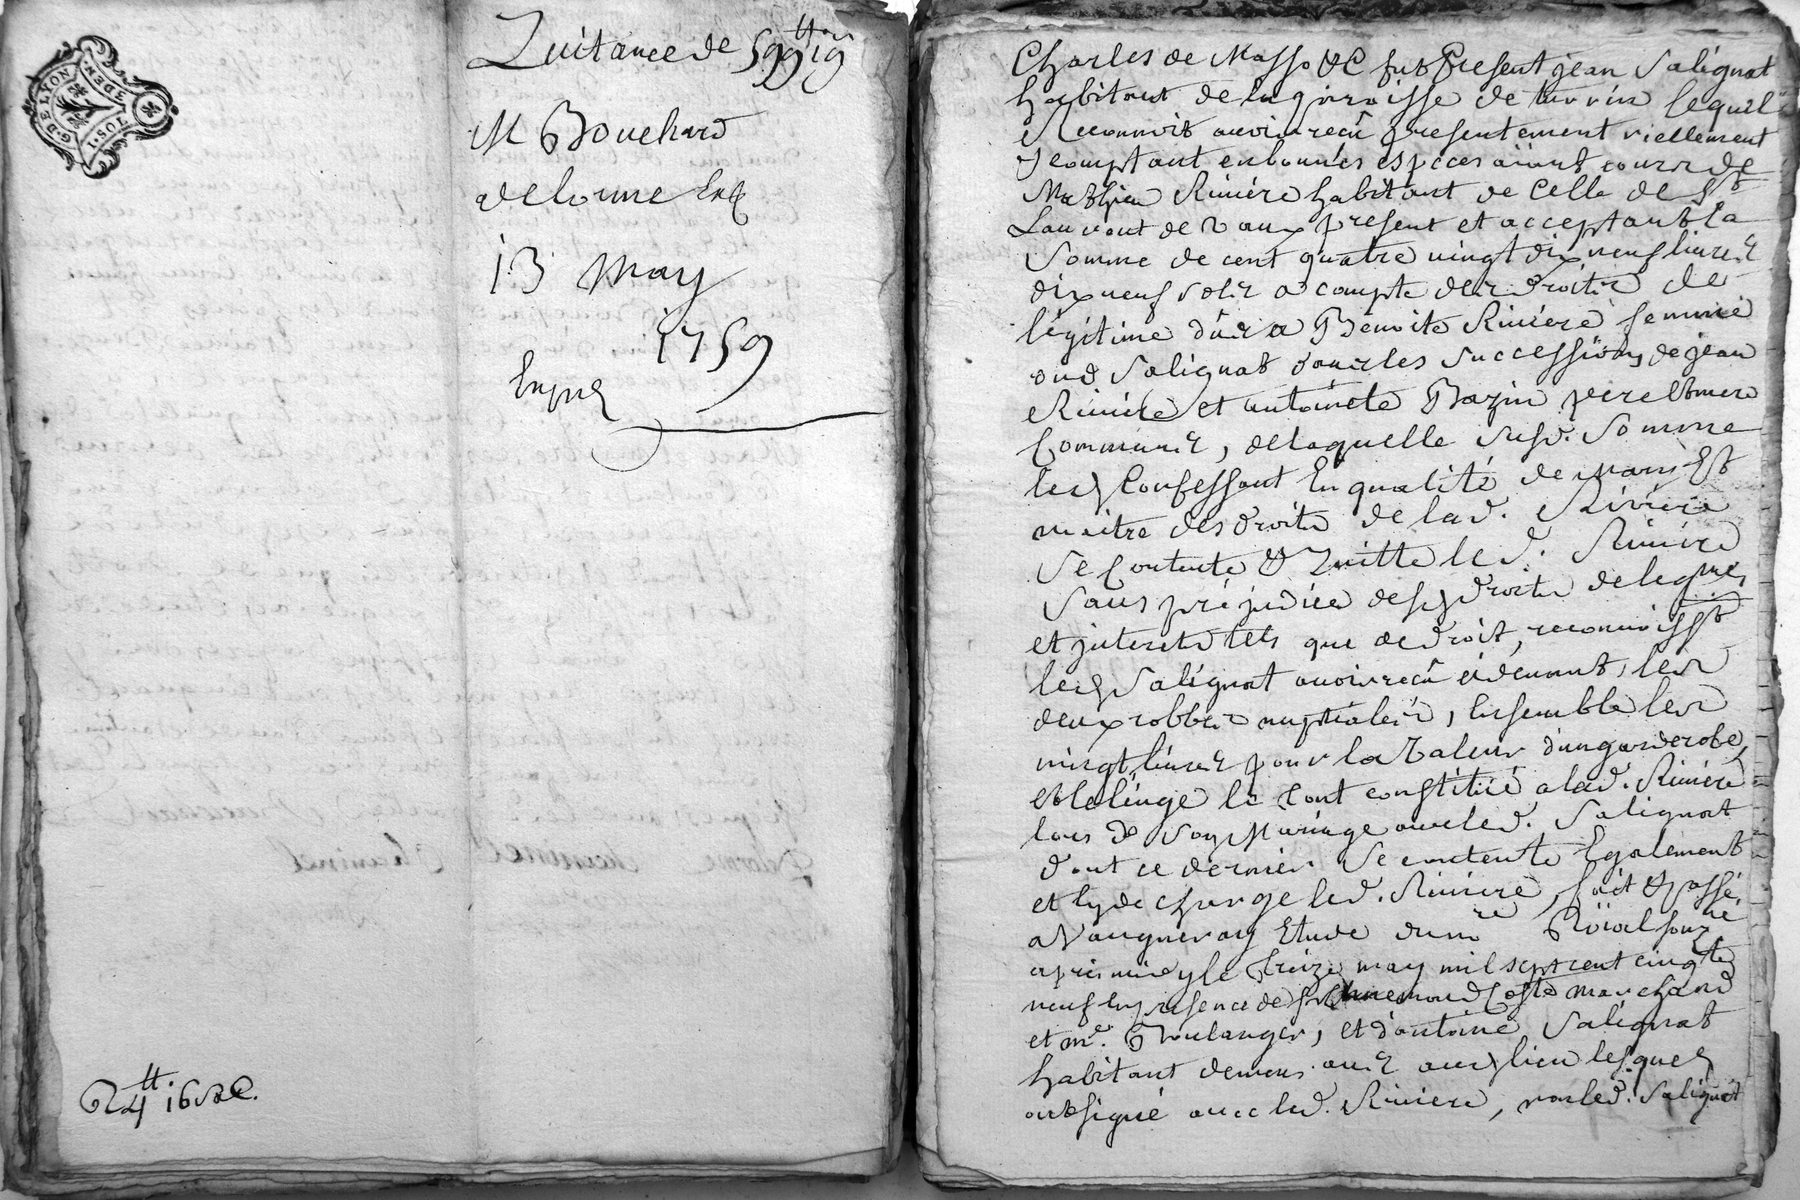 G. DE LYON
3. DEN.
1. SOL
Quitance de 599tt 19s
M Bouchard
delorme
13 may
1759
Expiée
R 4tt 16s
Charles de Masso &c fut Present jean Salignat
habitant de la paroisse de lequel
Reconnoit avoir recû presentement réellement
& comptant en bonnes espéces aïant cours de
Mathieu Riviére habitant de Celle de St
Laurent de Vaux present et acceptant la
Somme de cent quatre vingt dix neuf livres
dix neuf sols a compte des droits de
légitime dûs a Benoite Riviére femme
dud Salignat dans les successions de jean
Riviére et antoinete Bazin pere et mere
Communs, de laquelle susd. Somme
led Confessant En qualité de mari Et
maitre des droits de lad. Riviére
Se Contente & Quitte led. Riviére
Sans préjudice de ses droits de legme
et interets tels que de droit, reconnoisst
led Salignat avoir recû cidevant, les
deux robbes nuptiales, Ensemble les
vingt livres pour la Valeur d'un garderobe,
et le linge le tout constitué a lad. Riviére
lors de Son Mariage avec led. Salignat
dont ce dernier Se contente Egalement
et En decharge led. Riviére, fait & passé
a Vaugneray Etude du me
apres midy le treize may mil sept cent cinqte
neuf En presence de Sr Coste marchand
et me. Boulanger, et d'antoine Salignat
habitant aud lieu lesquels
ont signé avec led. Riviere, non led. Salignat